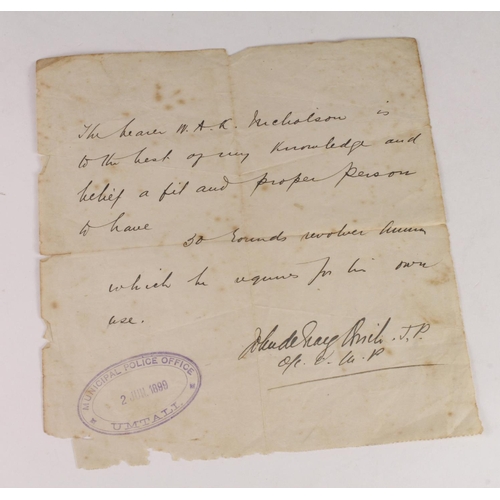 The bearer W. A. K. Nicholson is
to the best of my knowledge and
belief a fit and proper person
to have 50 rounds revolver Ammn
which he requires for his own
use.
John de Birch. J.P.
O/c U. M. P
MUNICIPAL POLICE OFFICE
2 1899
UMTALI.